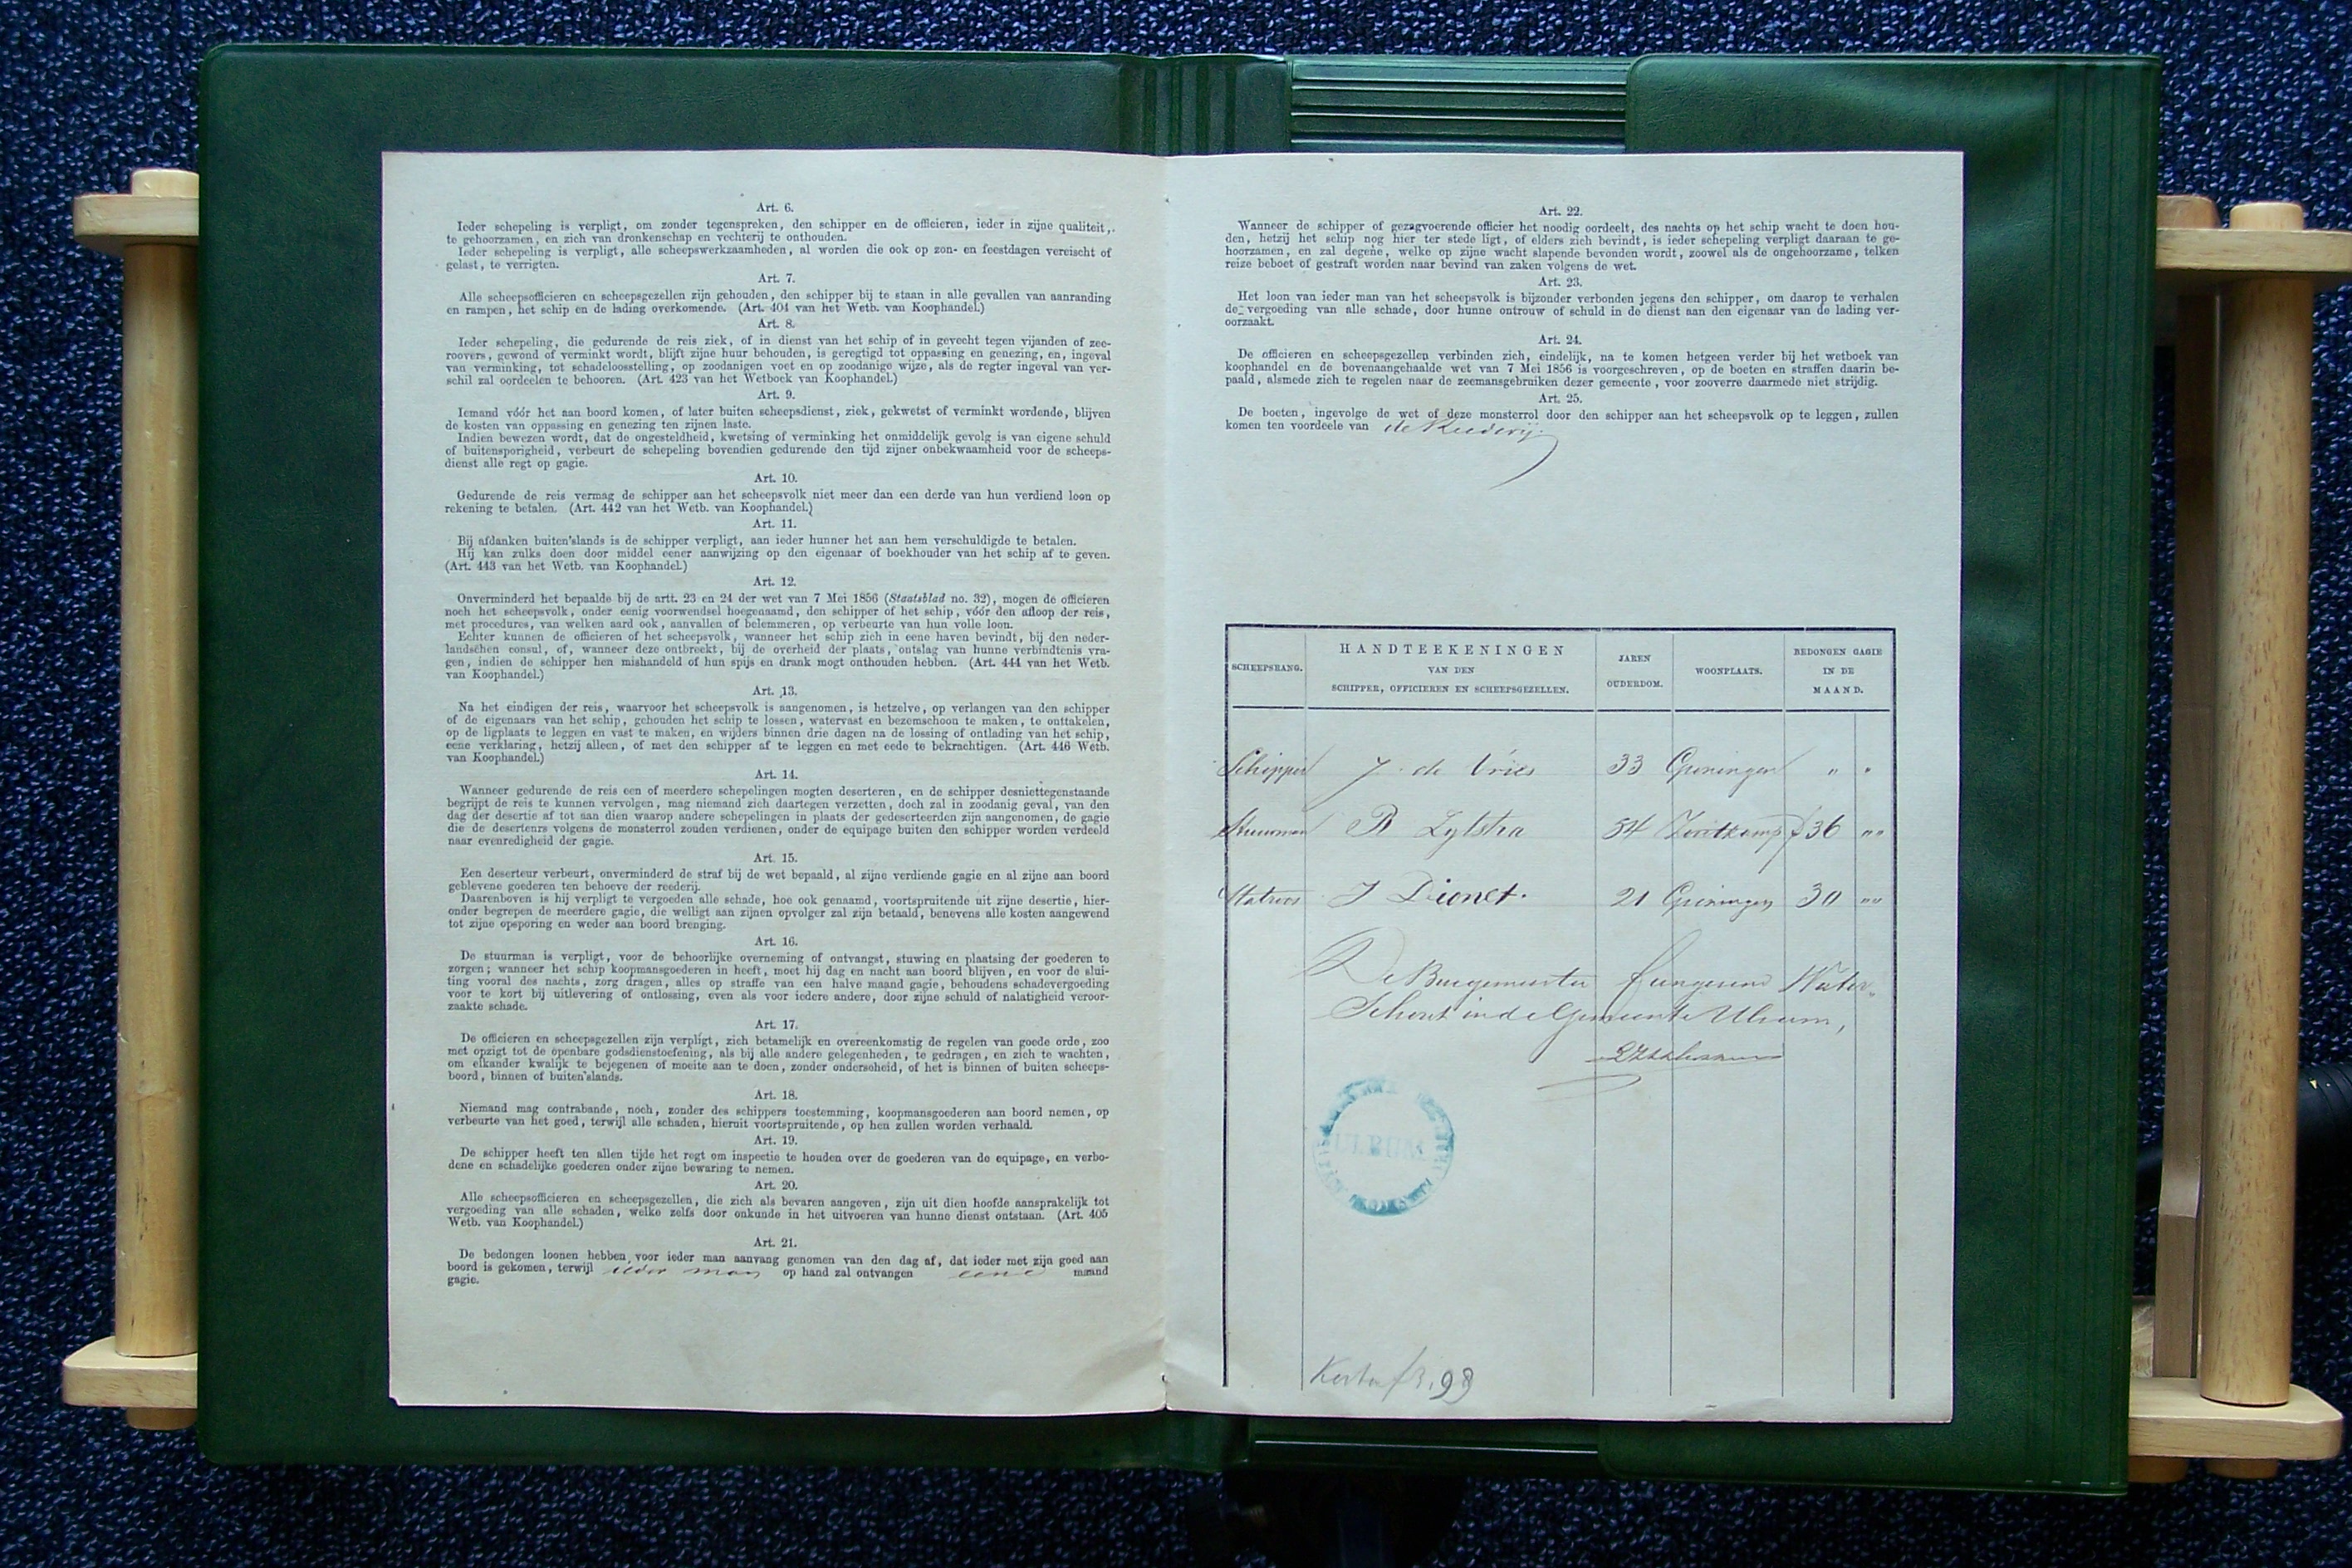 Art. 6.
Ieder schepeling is verpligt, om zonder tegenspreken, den schipper en de officieren, ieder in zijne qualiteit,
te gehoorzamen, en zich van dronkenschap en vechterij te onthouden.
Ieder schepeling is verpligt, alle scheepswerkzaamheden, al worden die ook op zon- en feestdagen vereischt of
gelast, te verrigten.
Art. 7.
Alle scheepsofficieren en scheepsgezellen zijn gehouden, den schipper bij te staan in alle gevallen van aanranding
en rampen, het schip en de lading overkomende. (Art. 404 van het Wetb. van Koophandel.)
Art. 8.
Ieder schepeling, die gedurende de reis ziek, of in dienst van het schip of in gevecht tegen vijanden of zee-
roovers, gewond of verminkt wordt, blijft zijne huur behouden, is geregtigd tot oppassing en genezing, en, ingeval
van verminking, tot schadeloosstelling, op zoodanigen voet en op zoodanige wijze, als de regter ingeval van ver-
schil zal oordeelen te behooren. (Art. 423 van het Wetboek van Koophandel.)
Art. 9.
Iemand vóór het aan boord komen, of later buiten scheepsdienst, ziek, gekwetst of verminkt wordende, blijven
de kosten van oppassing en genezing ten zijnen laste.
Indien bewezen wordt, dat de ongesteldheid, kwetsing of verminking het onmiddelijk gevolg is van eigene schuld
of buitensporigheid, verbeurt de schepeling bovendien gedurende den tijd zijner onbekwaamheid voor de scheeps-
dienst alle regt op gagie.
Art. 10.
Gedurende de reis vermag de schipper aan het scheepsvolk niet meer dan een derde van hun verdiend loon op
rekening te betalen. (Art. 442 van het Wetb. van Koophandel.)
Art. 11.
Bij afdanken buiten'slands is de schipper verpligt, aan ieder hunner het aan hem verschuldigde te betalen.
Hij kan zulks doen door middel eener aanwijzing op den eigenaar of boekhouder van het schip af te geven.
(Art. 443 van het Wetb. van Koophandel.)
Art. 12.
Onverminderd het bepaalde bij de artt. 23 en 24 der wet van 7 Mei 1856 (Staatsblad no. 32), mogen de officieren
noch het scheepsvolk, onder eenig voorwendsel hoegenaamd, den schipper of het schip, vóór den afloop der reis,
met procedures, van welken aard ook, aanvallen of belemmeren, op verbeurte van hun volle loon.
Echter kunnen de officieren of het scheepsvolk, wanneer het schip zich in eene haven bevindt, bij den neder-
landschen consul, of, wanneer deze ontbreekt, bij de overheid der plaats, ontslag van hunne verbindtenis vra-
gen, indien de schipper hen mishandeld of hun spijs en drank mogt onthouden hebben. (Art. 444 van het Wetb.
van Koophandel.)
Art. 13.
Na het eindigen der reis, waarvoor het scheepsvolk is aangenomen, is hetzelve, op verlangen van den schipper
of de eigenaars van het schip, gehouden het schip te lossen, watervast en bezemschoon te maken, te onttakelen,
op de ligplaats te leggen en vast te maken, en wijders binnen drie dagen na de lossing of ontlading van het schip,
eene verklaring, hetzij alleen, of met den schipper af te leggen en met eede te bekrachtigen. (Art. 446 Wetb.
van Koophandel.)
Art. 14.
Wanneer gedurende de reis een of meerdere schepelingen mogten deserteren, en de schipper desniettegenstaande
begrijpt de reis te kunnen vervolgen, mag niemand zich daartegen verzetten, doch zal in zoodanig geval, van den
dag der desertie af tot aan dien waarop andere schepelingen in plaats der gedeserteerden zijn aangenomen, de gagie
die de deserteurs volgens de monsterrol zouden verdienen, onder de equipage buiten den schipper worden verdeeld
naar evenredigheid der gagie.
Art. 15.
Een deserteur verbeurt, onverminderd de straf bij de wet bepaald, al zijne verdiende gagie en al zijne aan boord
geblevene goederen ten behoeve der reederij.
Daarenboven is hij verpligt te vergoeden alle schade, hoe ook genaamd, voortspruitende uit zijne desertie, hier-
onder begrepen de meerdere gagie, die welligt aan zijnen opvolger zal zijn betaald, benevens alle kosten aangewend
tot zijne opsporing en weder aan boord brenging.
Art. 16.
De stuurman is verpligt, voor de behoorlijke overneming of ontvangst, stuwing en plaatsing der goederen te
zorgen; wanneer het schip koopmansgoederen in heeft, moet hij dag en nacht aan boord blijven, en voor de slui-
ting vooral des nachts, zorg dragen, alles op straffe van een halve maand gagie, behoudens schadevergoeding
voor te kort bij uitlevering of ontlossing, even als voor iedere andere, door zijne schuld of nalatigheid veroor-
zaakte schade.
Art. 17.
De officieren en scheepsgezellen zijn verpligt, zich betamelijk en overeenkomstig de regelen van goede orde, zoo
met opzigt tot de openbare godsdienstoefening, als bij alle andere gelegenheden, te gedragen, en zich te wachten,
om elkander kwalijk te bejegenen of moeite aan te doen, zonder onderscheid, of het is binnen of buiten scheeps-
boord, binnen of buiten'slands.
Art. 18.
Niemand mag contrabande, noch, zonder des schippers toestemming, koopmansgoederen aan boord nemen, op
verbeurte van het goed, terwijl alle schaden, hieruit voortspruitende, op hen zullen worden verhaald.
Art. 19.
De schipper heeft ten allen tijde het regt om inspectie te houden over de goederen van de equipage, en verbo-
dene en schadelijke goederen onder zijne bewaring te nemen.
Art. 20.
Alle scheepsofficieren en scheepsgezellen, die zich als bevaren aangeven, zijn uit dien hoofde aansprakelijk tot
vergoeding van alle schaden, welke zelfs door onkunde in het uitvoeren van hunne dienst ontstaan. (Art. 405
Wetb. van Koophandel.)
Art. 21.
De bedongen loonen hebben voor ieder man aanvang genomen van den dag af, dat ieder met zijn goed aan
boord is gekomen, terwijl ieder man op hand zal ontvangen eene maand
gagie.
Art. 22.
Wanneer de schipper of gezagvoerende officier het noodig oordeelt, des nachts op het schip wacht te doen hou-
den, hetzij het schip nog hier ter stede ligt, of elders zich bevindt, is ieder schepeling verpligt daaraan te ge-
hoorzamen, en zal degene, welke op zijne wacht slapende bevonden wordt, zoowel als de ongehoorzame, telken
reize beboet of gestraft worden naar bevind van zaken volgens de wet.
Art. 23.
Het loon van ieder man van het scheepsvolk is bijzonder verbonden jegens den schipper, om daarop te verhalen
de vergoeding van alle schade, door hunne ontrouw of schuld in de dienst aan den eigenaar van de lading ver-
oorzaakt.
Art. 24.
De officieren en scheepsgezellen verbinden zich, eindelijk, na te komen hetgeen verder bij het wetboek van
koophandel en de bovenaangehaalde wet van 7 Mei 1856 is voorgeschreven, op de boeten en straffen daarin be-
paald, alsmede zich te regelen naar de zeemansgebruiken dezer gemeente, voor zooverre daarmede niet strijdig.
Art. 25.
De boeten, ingevolge de wet of deze monsterrol door den schipper aan het scheepsvolk op te leggen, zullen
komen ten voordeele van de Reederij.
SCHEEPSRANG. HANDTEEKENINGEN VAN DEN SCHIPPER, OFFICIEREN EN SCHEEPSGEZELLEN. JAREN OUDERDOM. WOONPLAATS. BEDONGEN GAGIE IN DE MAAND.
Schipper J. de Vries 33 Groningen " "
Stuurman R Zylstra 54 Zoutkamp f 36 " "
Matroos J Dionet. 21 Groningen 30 " "
De Burgemeester fungerend Water-
Schout in de Gemeente Ulrum,
ULRUM
Kosten f 3,98